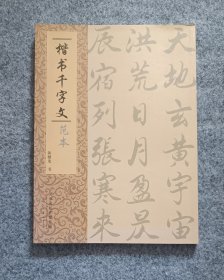 楷书千字文
范本
天地玄黄宇宙
洪荒日月盈昃
辰宿列張寒来